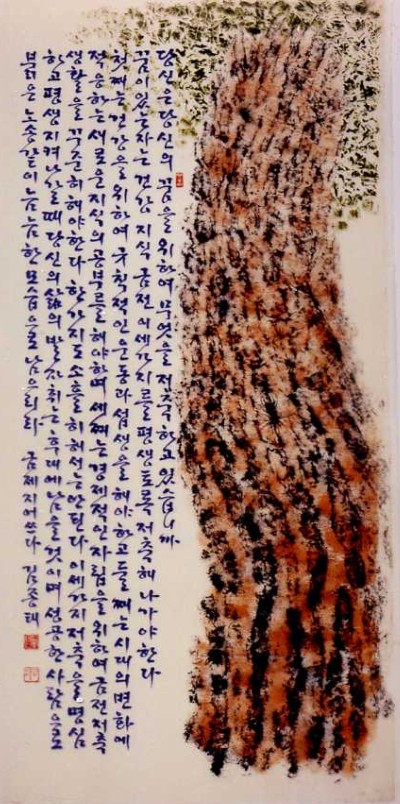 당신은 당신의 꿈을 위하여 무엇을 저축하고 있습니까
꿈이 있는 자는 건강 지식 금전 이 세가지를 평생토록 저축해 나가야 한다
첫째는 건강을 위하여 규칙적인 운동과 섭생을 해야하고 둘째는 시대의 변화에
적응하는 새로운 지식의 공부를 해야하며 세째는 경제적인 자립을 위하여 금전저축
생활을 꾸준히 해야한다 한가지도 소홀히 해서는 안된다 이 세가지 저축을 명심
하고 평생 지켜나갈때 당신의 삶의 발자취는 후대에 남을것이며 성공한 사람으로
붉은 노송같이 늠늠한 모습으로 남으리라 금제 지어쓰다 김종태